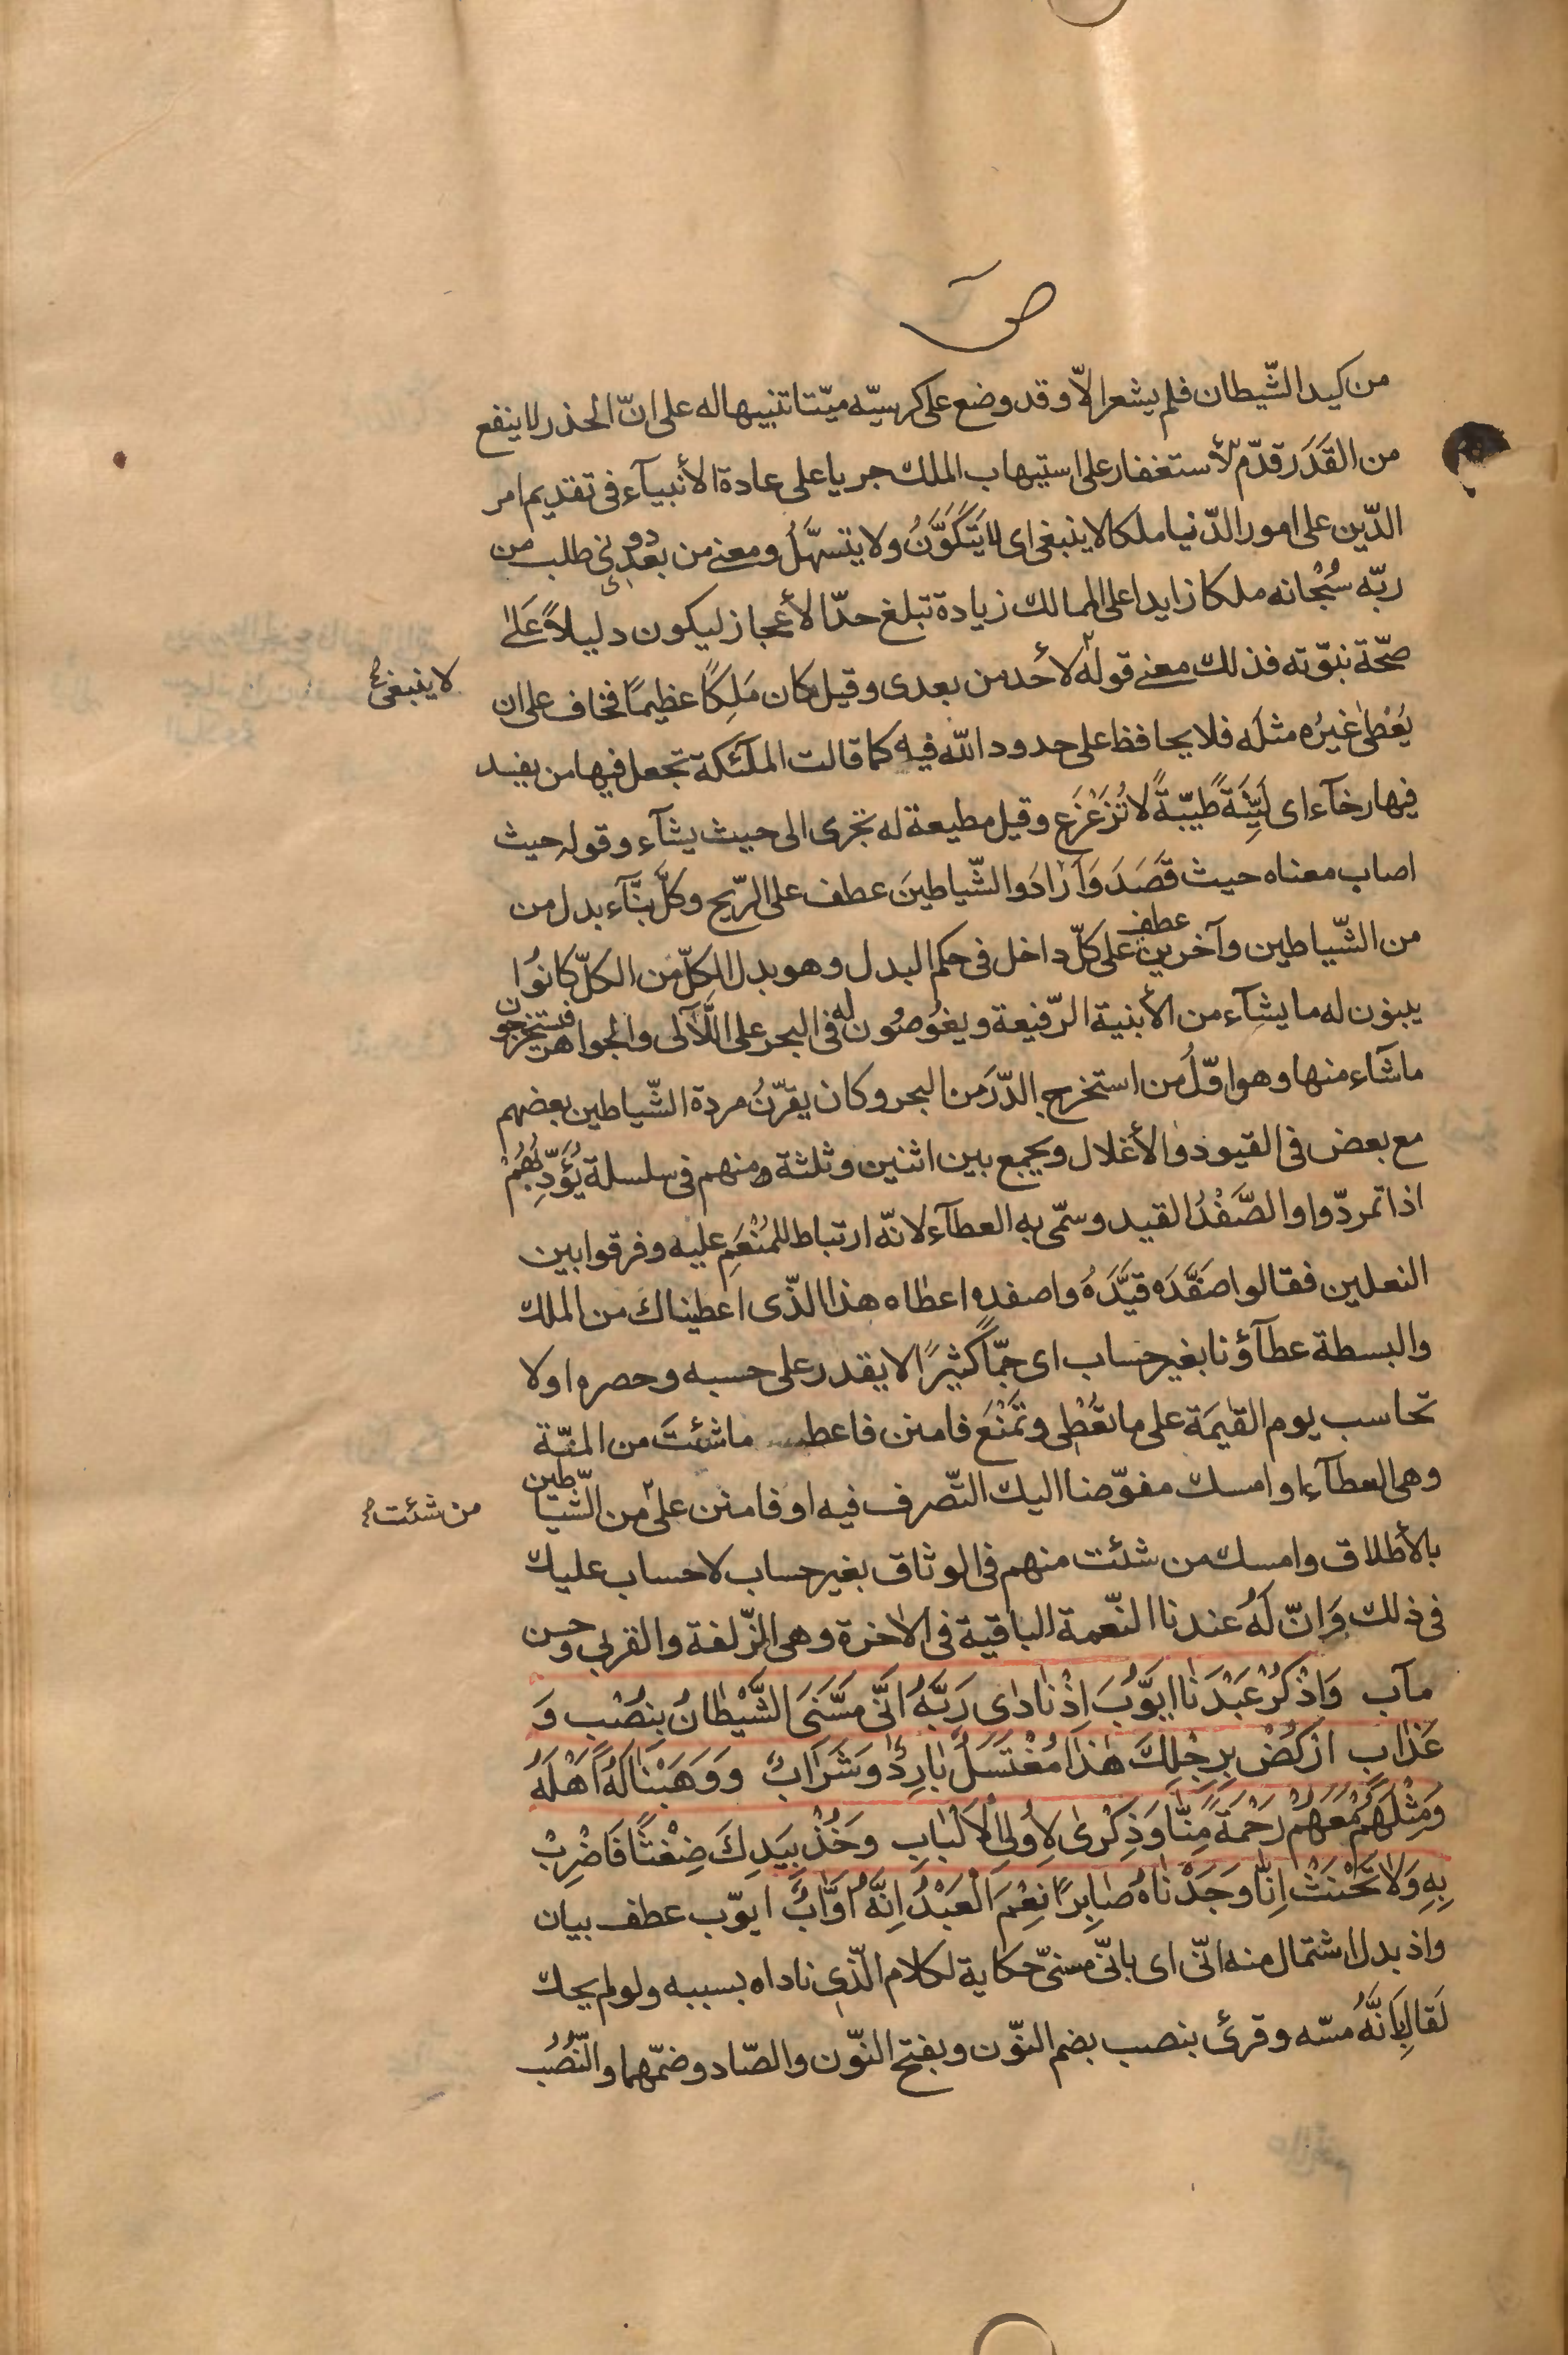 ص
من كيد الشّيطان فلم يشعر الاّ وقد وضع على كرسيّه ميّتا تنبيها له على انّ الحذر لا ينفع
من القَدَر قدّم الأستغفار على استيهاب الملك جريا على عادة الأنبيآء فى تقديم امر
الدّين على امور الدّنيا ملكا لا ينبغى اى لا يَتَكَوَّنُ ولا يتسهّلُ ومعنى من بعدى دونى طلب من
ربّه سُبْحانه ملكا زايدا على الممالك زيادة تبلغ حدّ الأعجاز ليكون دليلاً عَلىٰ
صحّة نبوّته فذلك معنى قوله لأحد من بعدى وقيل كان مَلِكًا عظيمًا فخاف على ان
لا ينبغى
يُعْطىٰ غيرُه مثلَه فلا يحافظ على حدود اللّه فيه كما قالت الملٓئكة تجعل فيها من يفسد
فيها رخآء اى لَيِّنَةً طيّبّةً لا تُزَعْزَع وقيل مطيعة له تجرى الى حيث يشآء وقوله حيث
اصاب معناه حيث قَصَدَ وَاَرٰادَ والشّياطينَ عطف على الرّيح وكلَّ بنّآء بدل من
من الشّياطين وآخرين عطف على كلّ داخل فى حكم البدل وهو بدل الكلّ من الكلّ كانُوا
يبنون له ما يشآء من الأبنية الرّفيعة ويغُوصُون له فى البحر على اللّآلى والجواهر فيستخرجون
ماشآء منها وهو اوّلُ من استخرج الدّرَ من البحر وكان يقرّنُ مردة الشّياطين بعضهم
مع بعض فى القيود والأغلال ويجمع بين اثنين وثلثة منهم فى سلسلة يُؤَدِّبُهُمْ
اذا تمردّوا والصَّفْدُ القيد وسمّى به العطآء لانّه ارتباط للمُنْعَمِ عليه وفرقوا بين
النعلين فقالوا صَفَّدَه قيَّدَهُ واصفده اعطاه هذا الّذى اعطيناك من الملك
والبسطة عطآؤنا بغير حساب اى جمّاً كثيرًا لا يقدر على حسبه وحصره او لا
تحاسب يوم القيٰمَة على ما تعُطْى وتَمْنَعَ فامنن فاعط ماشئتَ من المنّة
وهى العطآء او امسك مفوّضنا اليك التّصرف فيه او فامنن على من الشّياطين
من شئت
بالأطلاق وامسك من شئت منهم فى الوثاق بغير حساب لا حساب عليك
فى ذلك وَاِنّ لَهُ عندنا النّعمة الباقية فى الاٰخرة وهى الزّلفة والقربى وحسن
مآب وَاذْكُرْ عَبْدَنٰا ايوَّبَ اِذْنٰادىٰ رَبَّهُ اَنّى مَسَّنَىَ الشَّيْطٰانُ بِنُصْب وَ
عَذٰاب اركُضْ بِرِجْلِكَ هٰذٰا مُغْتَسَلٌ بٰارِدٌ وَشَرٰابٌ وَوَهَبْنٰا لَهُ اَهْلَهُ
وَمِثْلَهُمْ مَعَهُمْ رَحْمَةً مِنّٰا وَذِكْرىٰ لِاُولِى الْاَلْبٰابِ وَخُذْ بِيَدِكَ ضِغْثًا فَاضْرِبْ
بِهِ وَلاٰ تَحْنَثْ اِنّٰا وَجَدْنٰاهُ صٰابِرًا نِعْمَ الْعَبْدُ اِنَّهُ اَوّٰابٌ ايوّب عطف بيان
واذ بدل اشتمال منه انّى اى بانّى مسنىّ حكاية لكلام الّذى ناداه بسببه ولو لم يحك
لَقال بِاَنَّهُ مسّه وقرئ بنصب بضم النّون وبفتح النّون والصّاد وضمّهما والنّصُب